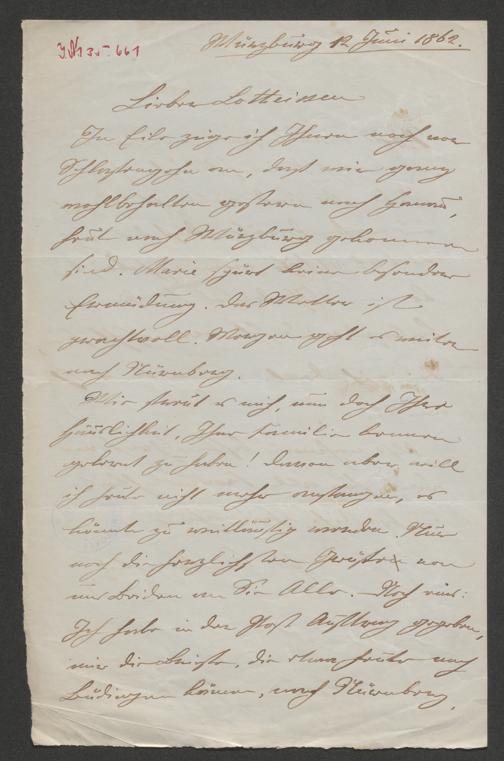 J.N. 135.661
Würzburg 12 Juni 1862.
Lieber Lotheissen
In Eile zeige ich Ihnen noch vor
Schlafengehn an, daß wir ganz
wohlbehalten gestern nach Hanau,
heut nach Würzburg gekommen
sind. Marie spürt keine besondere
Ermüdung. Das Wetter ist
prachtvoll. Morgen geht es weiter
nach Nürnberg.
Wie freut es mich, nun doch Ihre
Häuslichkeit, Ihre Familie kennen
gelernt zu haben! Davon aber will
ich heute nicht mehr anfangen, es
könnte zu weitläufig werden. Nur
noch die herzlichsten Grüße von
uns beiden an Sie Alle. Noch eins:
Ich habe in der Post Auftrag gegeben,
mir die Briefe, die etwa heute nach
Büdingen kämen, nach Nürnberg,